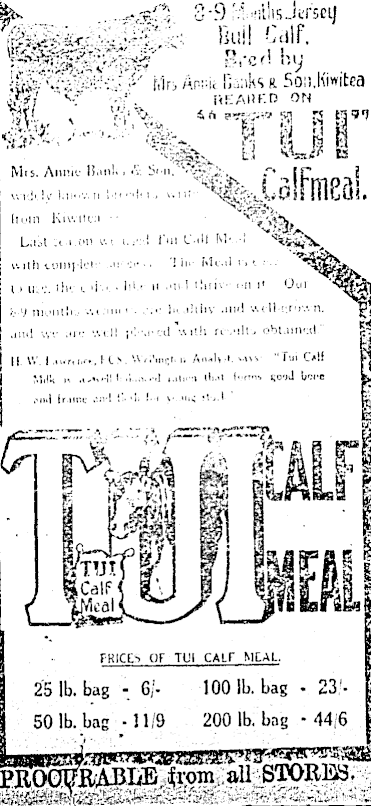 8-9 Months Jersey
Bull Calf,
Bred by
Mrs Annie Banks & Son, Kiwitea
REARED ON
"TUI"
Calfmeal.
Mrs. Annie Banks & Son,
widely known breeders, write
from Kiwitea
Last season we used Tui Calf Meal
with complete success. The Meal is
to use, the calves like it and thrive on it. Our
8-9 months weaners are healthy and well-grown,
and we are well pleased with results obtained"
H. W. Lawrence, F.C.S., Wellington Analyst, says "Tui Calf
Milk is a well balanced ration that forms good bone
and frame and flesh for young stock."
TUI CALF
MEAL
TUI
Calf
Meal
PRICES OF TUI CALF MEAL.
25 lb. bag - 6/- 100 lb. bag - 23/-
50 lb. bag - 11/9 200 lb. bag - 44/6
PROCURABLE from all STORES.